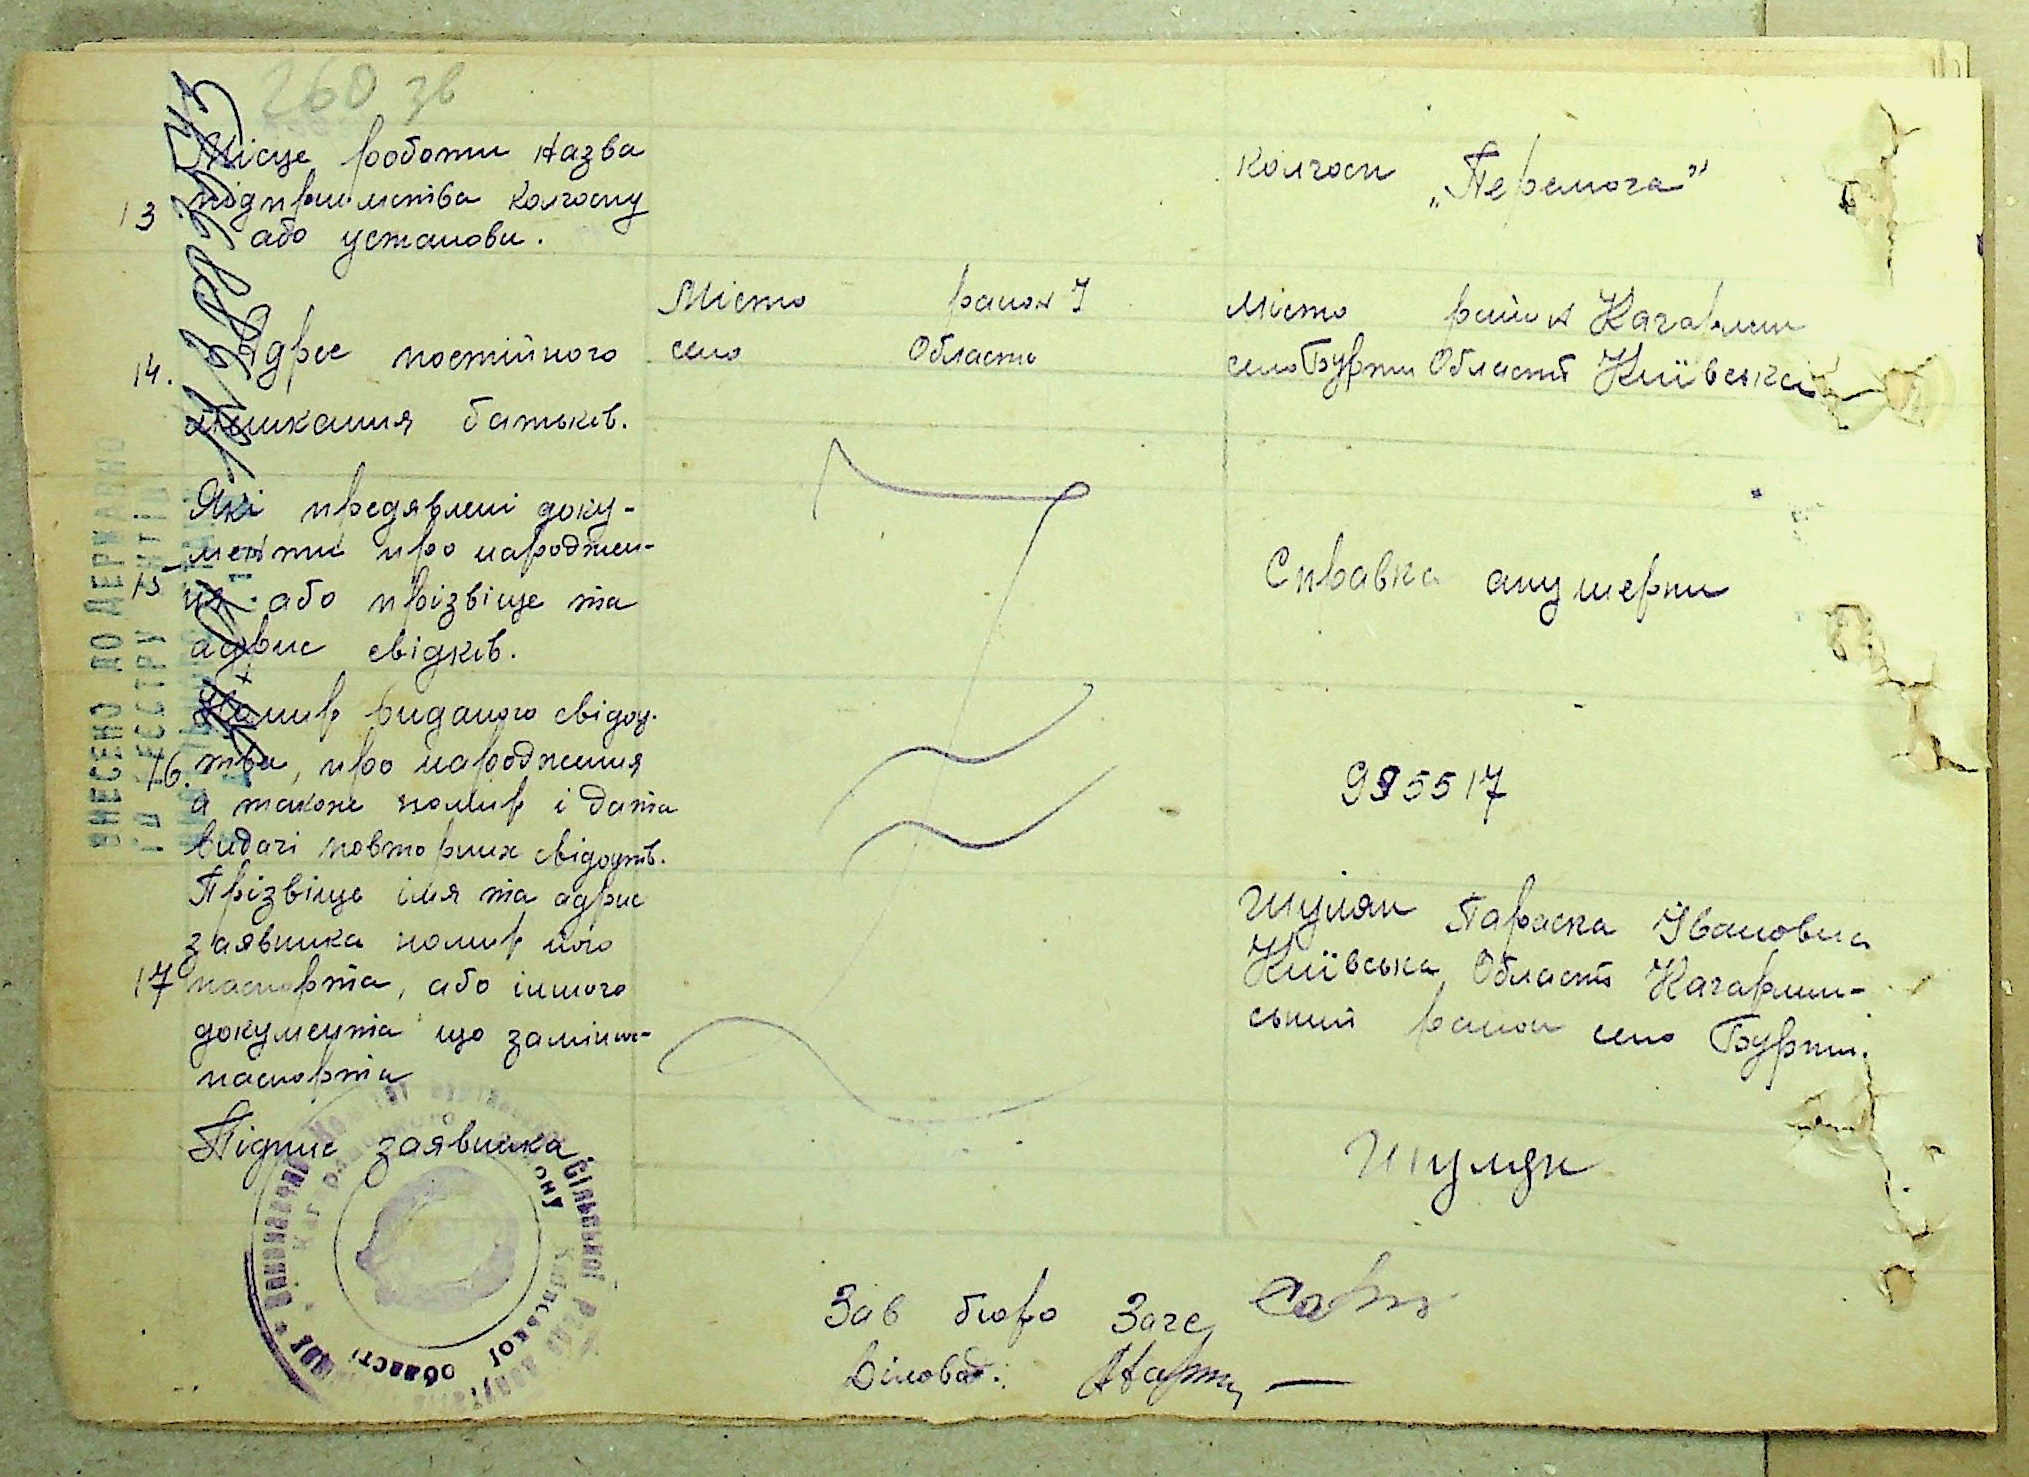 260 зв
13 Місце роботи назва
підприємства колгоспу
або установи.
колгосп „Перемога"
14. Адрес постійного
мешкання батьків.
Місто район
село Область
Місто район Кагарлик
село Бурти Область Київська
15 Які предявлені доку-
менти про народжен-
ня або прізвіще та
адрис свідків.
Справка акушерки
16. Номир виданого свідоц-
тва, про народження
а також номир і дата
видачі повторних свідоцтв.
995517
17 Прізвіще імя та адрис
заявника номир його
паспорта, або іншого
документа що замінює
паспорта
Шулян Параска Івановна
Київська Область Кагарлик-
ський район село Бурти.
Підпис заявника
Шулян
Зав бюро Загс
Діловод:
ВНЕСЕНО ДО ДЕРЖАВНО
ГО РЕЄСТРУ
Сільської Ради депутатів
Київської області